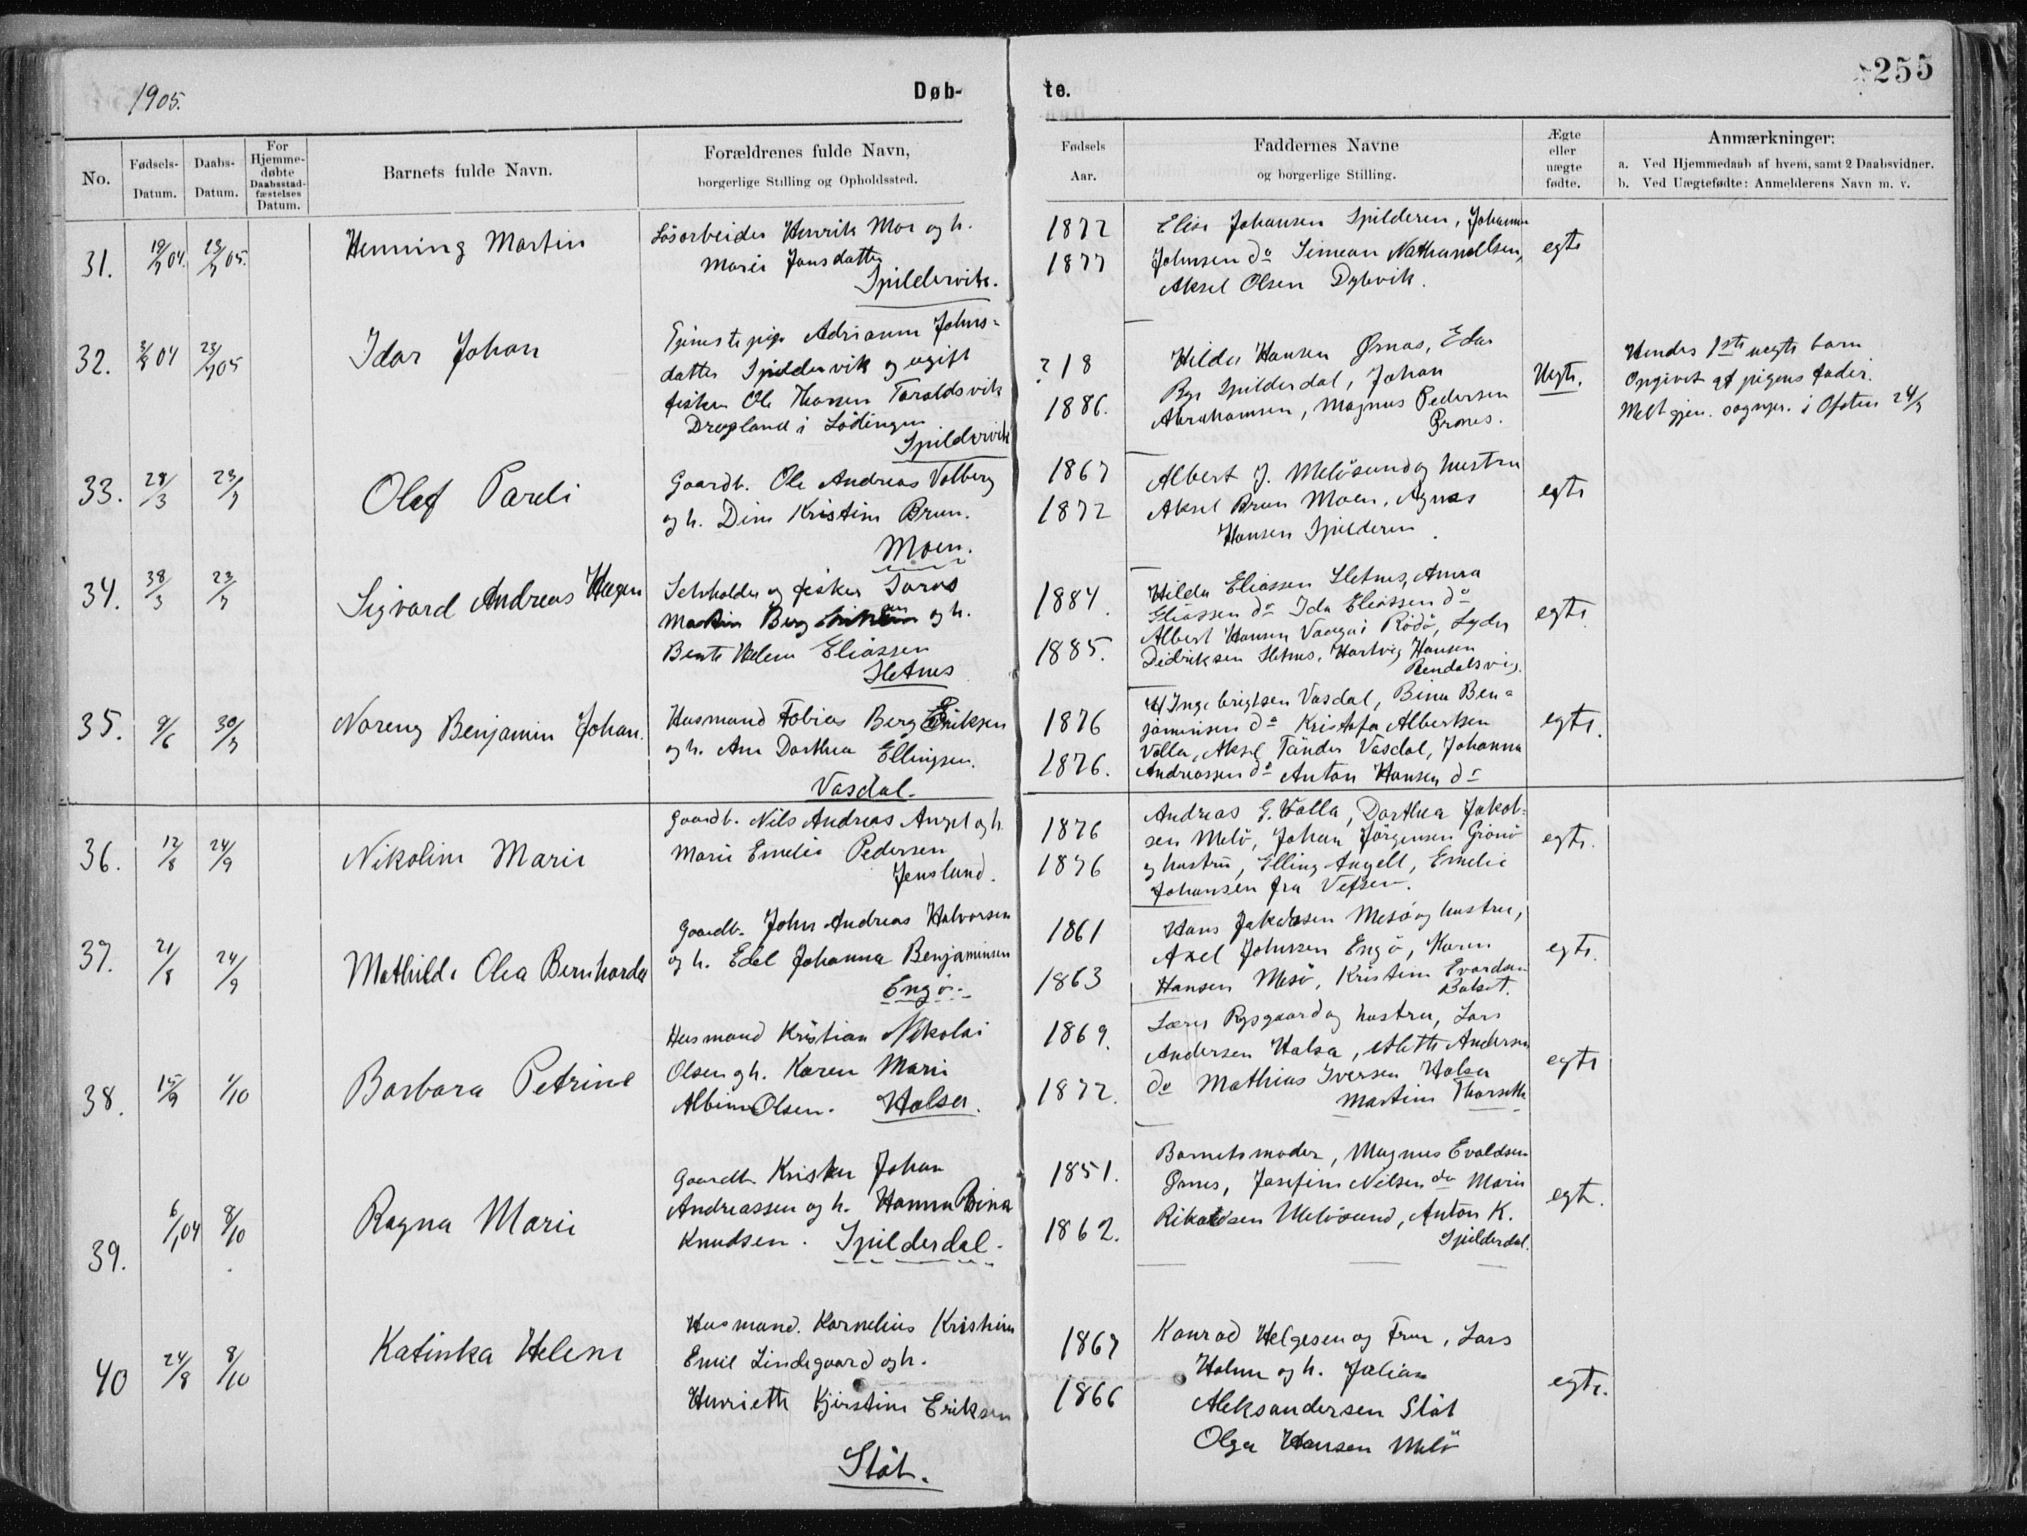 1905.
Døb-
te.
255
No.
Fødsels-
Datum.
Daabs-
Datum.
For
Hjemme-
døbte
Daabsstad-
fæstelses
Datum.
Barnets fulde Navn.
Forældrenes fulde Navn,
borgerlige Stilling og Opholdssted.
Fødsels
Aar.
Faddernes Navne
og borgerlige Stilling.
Ægte
eller
uægte
fødte.
Anmærkninger:
a. Ved Hjemmedaab af hvem, samt 2 Daabsvidner.
b. Ved Uægtefødte: Anmelderens Navn m. v.
31.
Henning Martin
Løsarbeider Henrik Mor og h.
Marie Jansdatter
Spildervik.
1872
1877
Elise Johansen Spilderen, Johanna
Johnsen do Simeon Nathanaelsen,
Aksel Olsen Dybvik.
egte
32.
Idar Johan
Tjenestepige Adrianna Johns-
datter Spildervik og ugift
fisker Ole Thorsen Taraldsvik
i Lødingen
Spildervik
? 18
1886.
Hilda Hansen Ørnæs, Edar
Spilderdal, Johan
Abrahamsen, Magnus Pedersen
Uegte.
Hendes 1ste uegte barn
Opgivet af pigens fader.
i Ofoten 24/7
33.
28/3
23/7
Olaf Pareli
Gaardb. Ole Andreas Valberg
og h. Dina Kristine Brun.
Moen.
1867
1872
Albert J. Meløsund og hustru
Aksel Brun Moen, Agnes
Hansen Spilderen
egte
34.
23/7
Sigvard Andreas Hagen
og fisker
Martin Berg og h.
Bente Helene Eliassen
Sletnes
1884.
1885.
Hilda Eliassen Sletnes, Anna
Eliassen do Ida Eliassen do
Albert Hansen Vaaga i Rødø, Lyder
Didriksen Sletnes, Hartvig Hansen
Rendalsvig.
egte.
35.
9/6
30/7
Noreng Benjamin Johan.
Husmand Tobias Berg Eriksen
og h. Ane Dorthea Ellingsen.
Vasdal.
1876
1876.
Ingebrigtsen Vasdal, Bina Ben-
jaminsen do Kristofer Albertsen
Valla, Aksel Vasdal, Johanna
Andreassen do Anton Hansen do
egte.
36.
12/8
24/9
Nikoline Marie
Gaardb. Nils Andreas Angel og h.
Marie Emelie Pedersen
Jenslund.
1876
1876
Andreas G. Valla, Dorthea Jakob-
sen Melø, Johan Jørgensen Grønø
og hustru, Elling Angell, Emelie
Johansen fra Vefsen.
egte.
37.
21/8
24/9
Mathilde Olea Bernharda
Gaardb. John Andreas Halvorsen
og h. Edel Johanna Benjaminsen
Engø.
1861
1863
Hans Jakobsen Mesø og hustru,
Axel Johnsen Engø, Karen
Hansen Mesø, Kristine Evardsen
Bolset.
egte.
38.
15/9
1/10
Barbara Petrine
Husmand Kristian Nikolai
Olsen og h. Karen Marie
Albine Olsen. Halsa.
1869.
1872.
Lærer Rysgaard og hustru, Lars
Andersen Halsa, Alette Andersen
do Mathias Iversen Halsa
Martin Thorseth
egte
39.
6/1 04
8/10
Ragna Marie
Gaardb. Krister Johan
Andreassen og h. Hanna Bina
Knudsen. Spilderdal.
1851.
1862.
Barnets moder, Magnus Evaldsen
Ørnes, Josefine Nilsen do Marie
Rikardsen Meløsund, Anton K.
Spilderdal.
egte.
40
24/8
8/10
Katinka Helene
Husmand. Kornelius Kristian
Emil Lindegaard og h.
Henriette Kjerstine Eriksen
Støt.
1867
1866
Konrad Helgesen og Frue, Lars
Holm og h. Julian
Aleksandersen Støt
Olga Hansen Melø
egte.